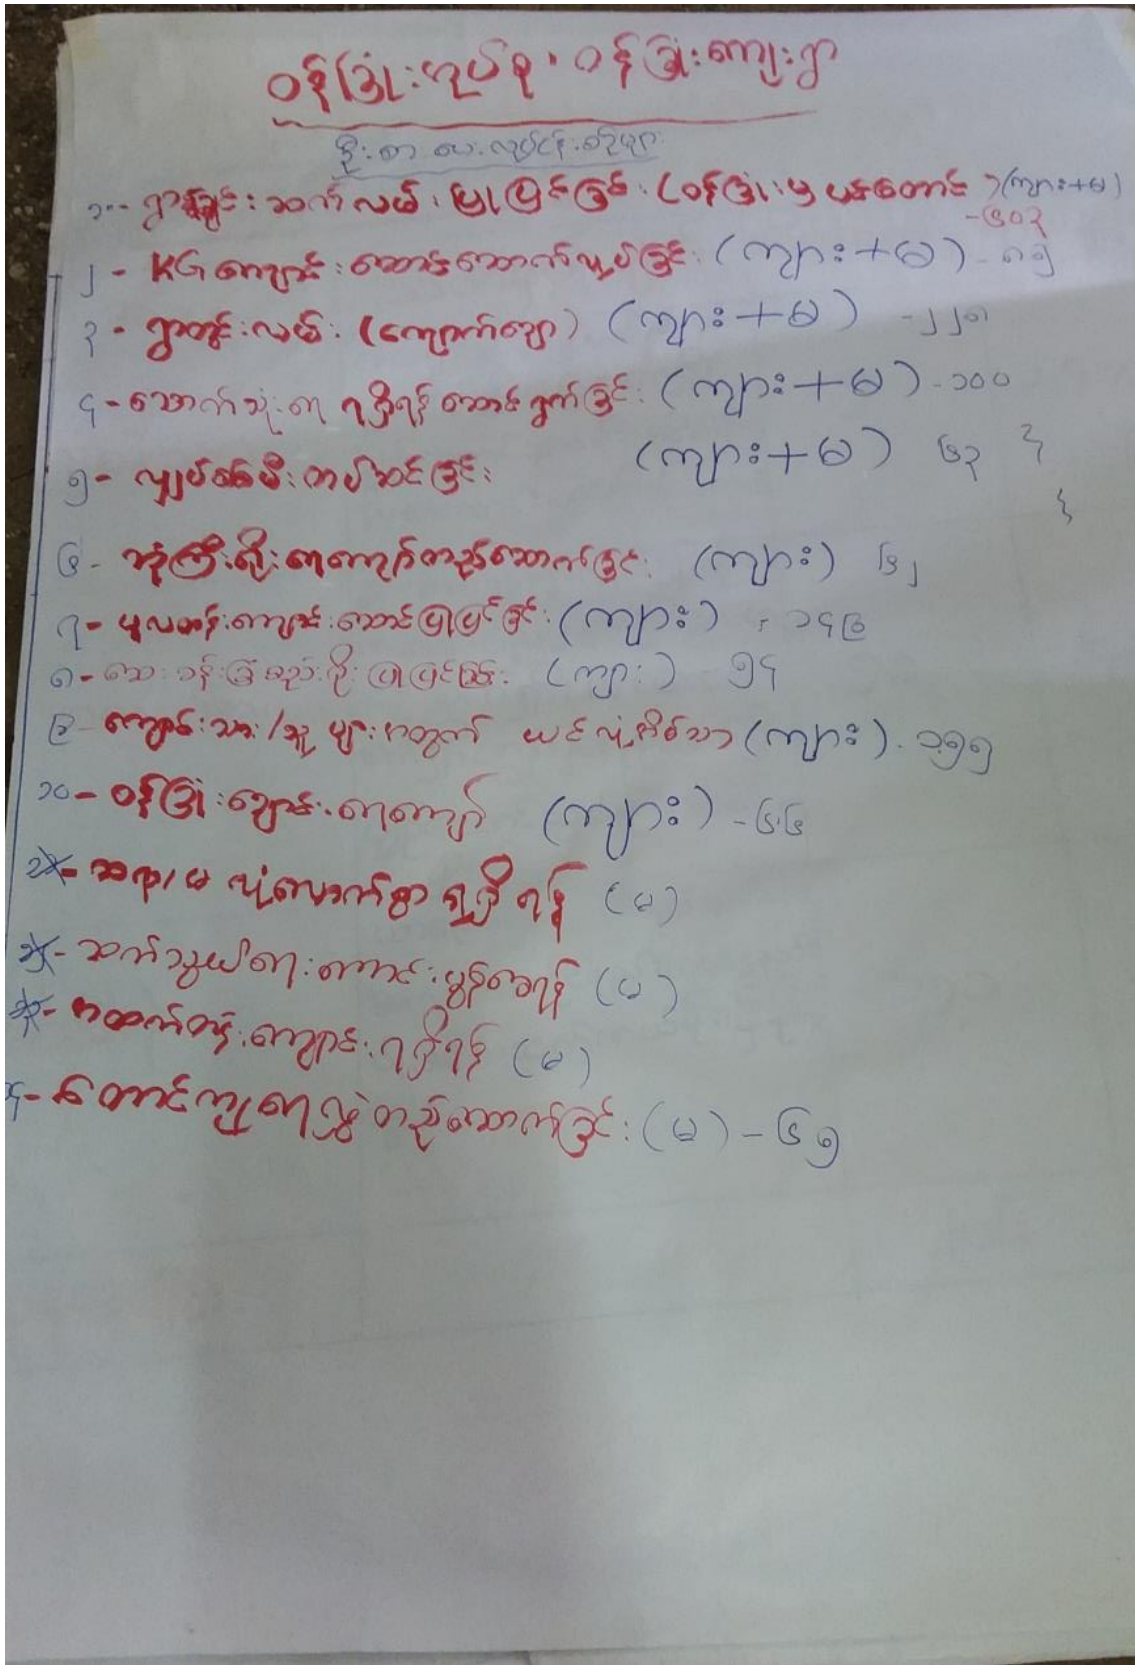 ဝန်ခြုံးအုပ်စု၊ ဝန်ခြုံးကျေးရွာ
ဦးစားပေးလုပ်ငန်းစဉ်များ
၁- ရွာချင်းဆက်လမ်းပြုပြင်ခြင်း (ဝန်ခြုံးမှ ပန်းတောင်း) (ကျား+မ)
-၆၀၃
၂- KG ကျောင်းဆောင်ဆောက်လုပ်ခြင်း (ကျား+မ) - ၈၅
၃- ရွာတွင်းလမ်း (ကျောက်ချော) (ကျား+မ) -၂၂၈
၄- သောက်သုံးရေ ရရှိရန် ဆောင်ရွက်ခြင်း (ကျား+မ) -၁၀၀
၅- လျှပ်စစ်မီးတပ်ဆင်ခြင်း (ကျား+မ) ၆၃
၆- ဘုံကြီးရိုးရေကျော်တည်ဆောက်ခြင်း (ကျား) ၆၂
၇- မူလတန်းကျောင်းဆောင်ပြုပြင်ခြင်း (ကျား) - ၁၄၉
၈- ဆေးခန်းခြံစည်းရိုးပြုပြင်ခြင်း (ကျား) ၅၄
၉- ကျောင်းသား/သူများအတွက် ယင်လုံအိမ်သာ (ကျား) - ၁၅၅
၁၀- ဝန်ခြုံးချောင်းရေကျော် (ကျား) -၆၆
ဆရာ/မ လုံလောက်စွာ ရရှိရန် (မ)
ဆက်သွယ်ရေးကောင်းမွန်စေရန် (မ)
အထက်တန်းကျောင်းရရှိရန် (မ)
၄- တောင်ကျရေလွှဲတည်ဆောက်ခြင်း (မ) - ၆၅